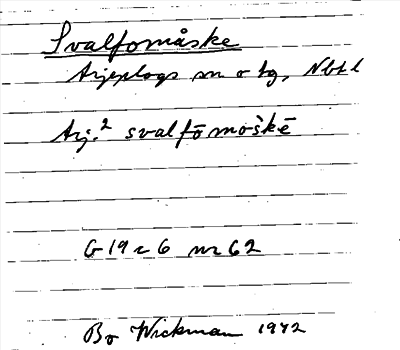 Svalfomåske
Arjeplogs sn o tg, Nbtl
Arj.² svalfōmoškē
G 19 c 6 nr 62
Bo Wickman 1972